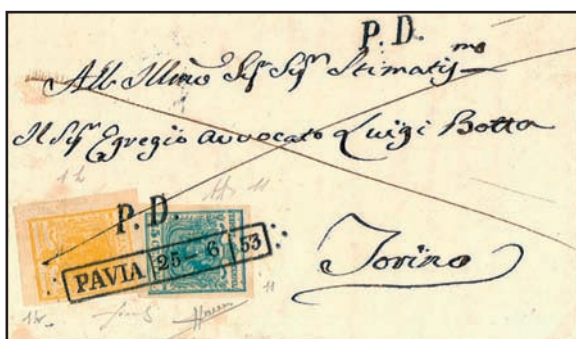 P. D.
All Illmo Sigr Sigr Stimatismo
Il Sigr Egregio Avvocato Luigi Botta
1 h
11
P. D.
PAVIA 25-6 53
Torino
11